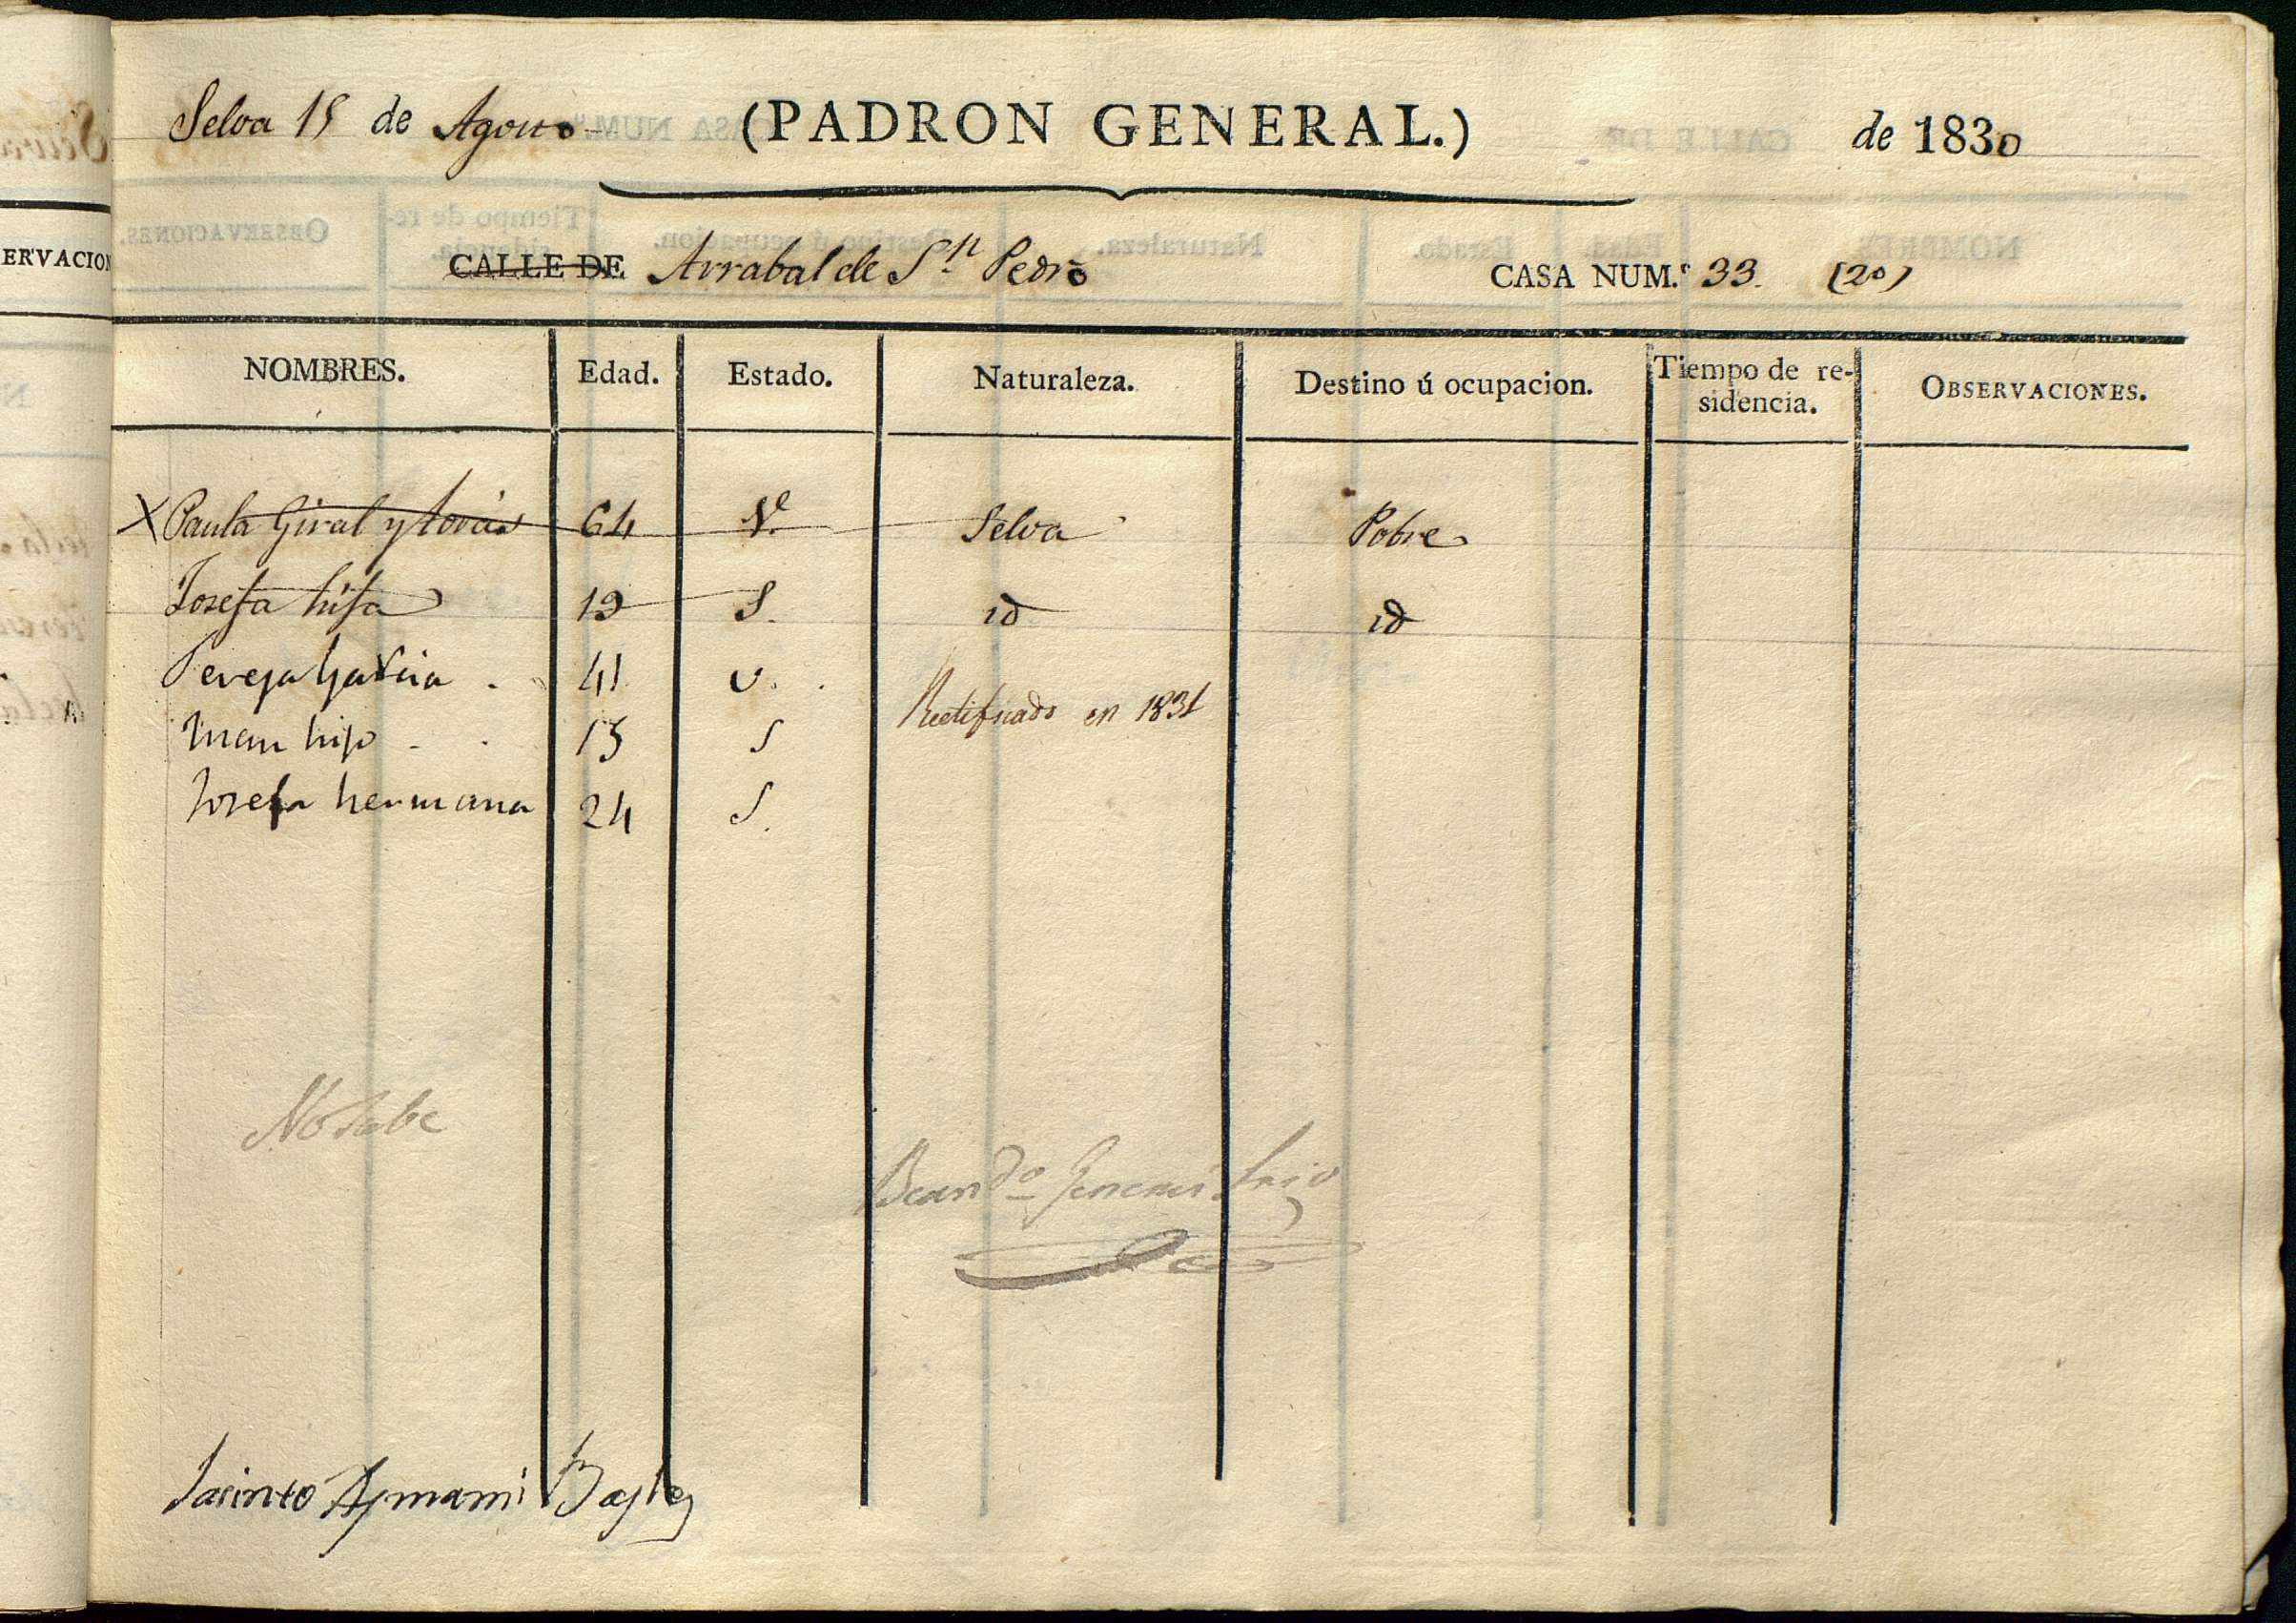 Selva 15 de Agosto (PADRON GENERAL.) de 1830
CALLE DE Arrabal de Sn Pedro CASA NUM.º 33. (20)
NOMBRES. Edad. Estado. Naturaleza. Destino ú ocupacion. Tiempo de residencia. OBSERVACIONES.
X Paula Giral y 64 V.ª Selva Pobre
Josefa hija 19 S. id id
Garcia 41 v.
Rectificado en 1831
Juan hijo 15 S
Josefa hermana 24 S.
No sabe
Jacinto Aymami Bayle
ERVACION